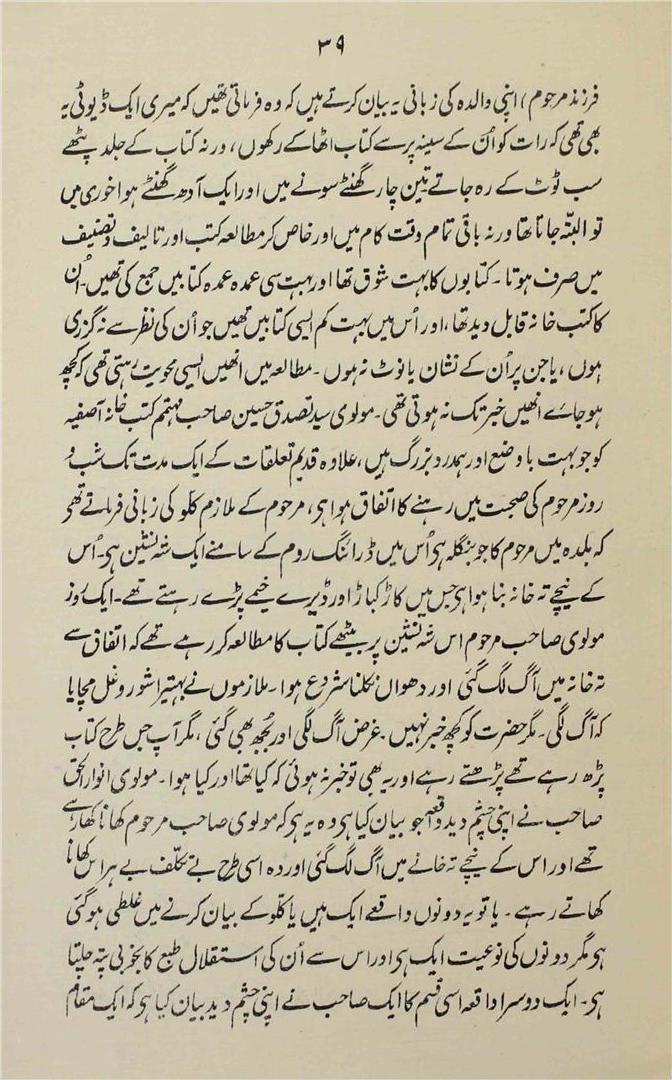 ۳۹
فرزند مرحوم) اپنی والدہ کی زبانی یہ بیان کرتے ہیں کہ وہ فرماتی تھیں کہ میری ایک ڈیوٹی یہ
بھی تھی کہ رات کو اُن کے سینہ پر سے کتاب اٹھا کے رکھوں، ورنہ کتاب کے جلد پٹھے
سب ٹوٹ کے رہ جاتے تین چار گھنٹے سونے میں اور ایک آدھ گھنٹے ہوا خوری میں
تو البتہ جاتا تھا ورنہ باقی تمام وقت کام میں اور خاص کر مطالعہ کتب اور تالیف و تصنیف
میں صرف ہوتا۔ کتابوں کا بہت شوق تھا اور بہت سی عمدہ عمدہ کتابیں جمع کی تھیں۔ اُن
کا کتب خانہ قابل دید تھا، اور اُس میں بہت کم ایسی کتابیں تھیں جو اُن کی نظر سے نہ گزری
ہوں، یا جن پر اُن کے نشان یا نوٹ نہ ہوں۔ مطالعہ میں انھیں ایسی محویت رہتی تھی کہ کچھ
ہو جائے انھیں خبر تک نہ ہوتی تھی۔ مولوی سید تصدق حسین صاحب مہتمم کتب خانہ آصفیہ
کو جو بہت با وضع اور ہمدرد بزرگ ہیں، علاوہ قدیم تعلقات کے ایک مدت تک شب و
روز مرحوم کی صحبت میں رہنے کا اتفاق ہوا ہی، مرحوم کے ملازم کلّو کی زبانی فرماتے تھے
کہ بلدہ میں مرحوم کا جو بنگلہ ہی اُس میں ڈرائنگ روم کے سامنے ایک شہ نشین ہی۔ اُس
کے نیچے تہ خانہ بنا ہوا ہی جس میں کاڑ کباڑ اور ڈیرے خیمے پڑے رہتے تھے۔ ایک روز
مولوی صاحب مرحوم اس شہ نشین پر بیٹھے کتاب کا مطالعہ کر رہے تھے کہ اتفاق سے
تہ خانہ میں آگ لگ گئی اور دھواں نکلنا شروع ہوا۔ ملازموں نے بہتیرا شور و غل مچایا
کہ آگ لگی۔ مگر حضرت کو کچھ خبر نہیں۔ غرض آگ لگی اور بُجھ بھی گئی، مگر آپ جس طرح کتاب
پڑھ رہے تھے پڑھتے رہے اور یہ بھی تو خبر نہ ہوئی کہ کیا تھا اور کیا ہوا۔ مولوی انوار الحق
صاحب نے اپنی چشم دید واقعہ جو بیان کیا ہی وہ یہ ہی کہ مولوی صاحب مرحوم کھانا کھا رہے
تھے اور اس کے نیچے تہ خانے میں آگ لگ گئی اور وہ اسی طرح بے تکلف بے ہراس کھانا
کھاتے رہے۔ یا تو یہ دونوں واقعے ایک ہیں یا کلّو کے بیان کرنے میں غلطی ہو گئی
ہی مگر دونوں کی نوعیت ایک ہی اور اس سے اُن کی استقلال طبع کا بخوبی پتہ چلتا
ہی۔ ایک دوسرا واقعہ اسی قسم کا ایک صاحب نے اپنی چشم دید بیان کیا ہی کہ ایک مقام